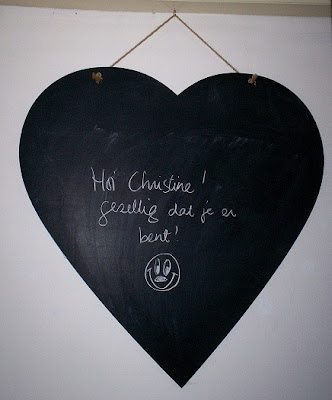 Hoi Christine!
gezellig dat je er
bent!